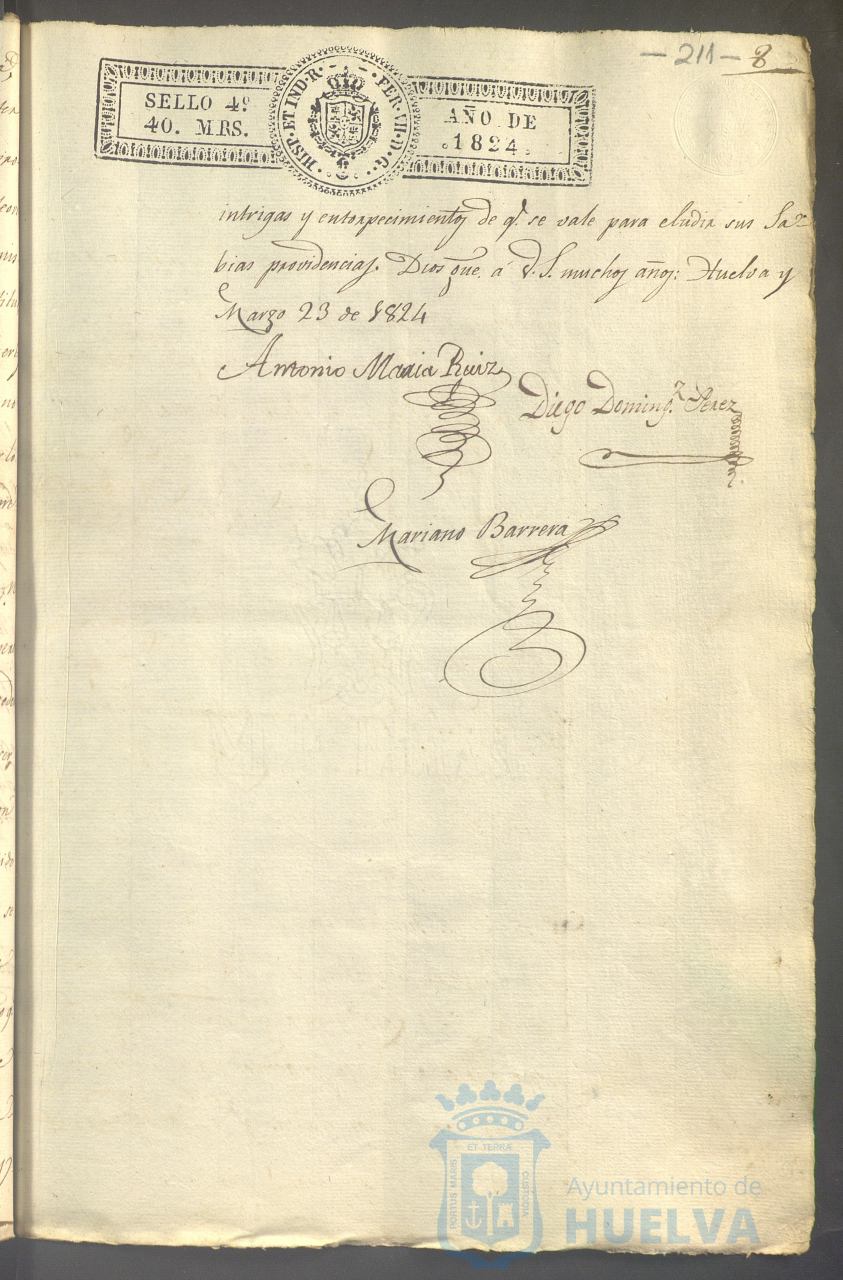 - 211 - 8
SELLO 4º
40. MRS.
HISP. ET IND. R. FER. VII. D. G.
AÑO DE
.1824.
intrigas y entorpecimientos de q.e se vale para eludir sus Sa-
bias providencias. Dios gue. á V.S. muchos años: Huelva y
Marzo 23 de 1824
Antonio Maria Ruiz
Diego Doming.z Perez
Mariano Barrera
ET TERRÆ
PORTUS MARIS
CUSTODIA
Ayuntamiento de
HUELVA